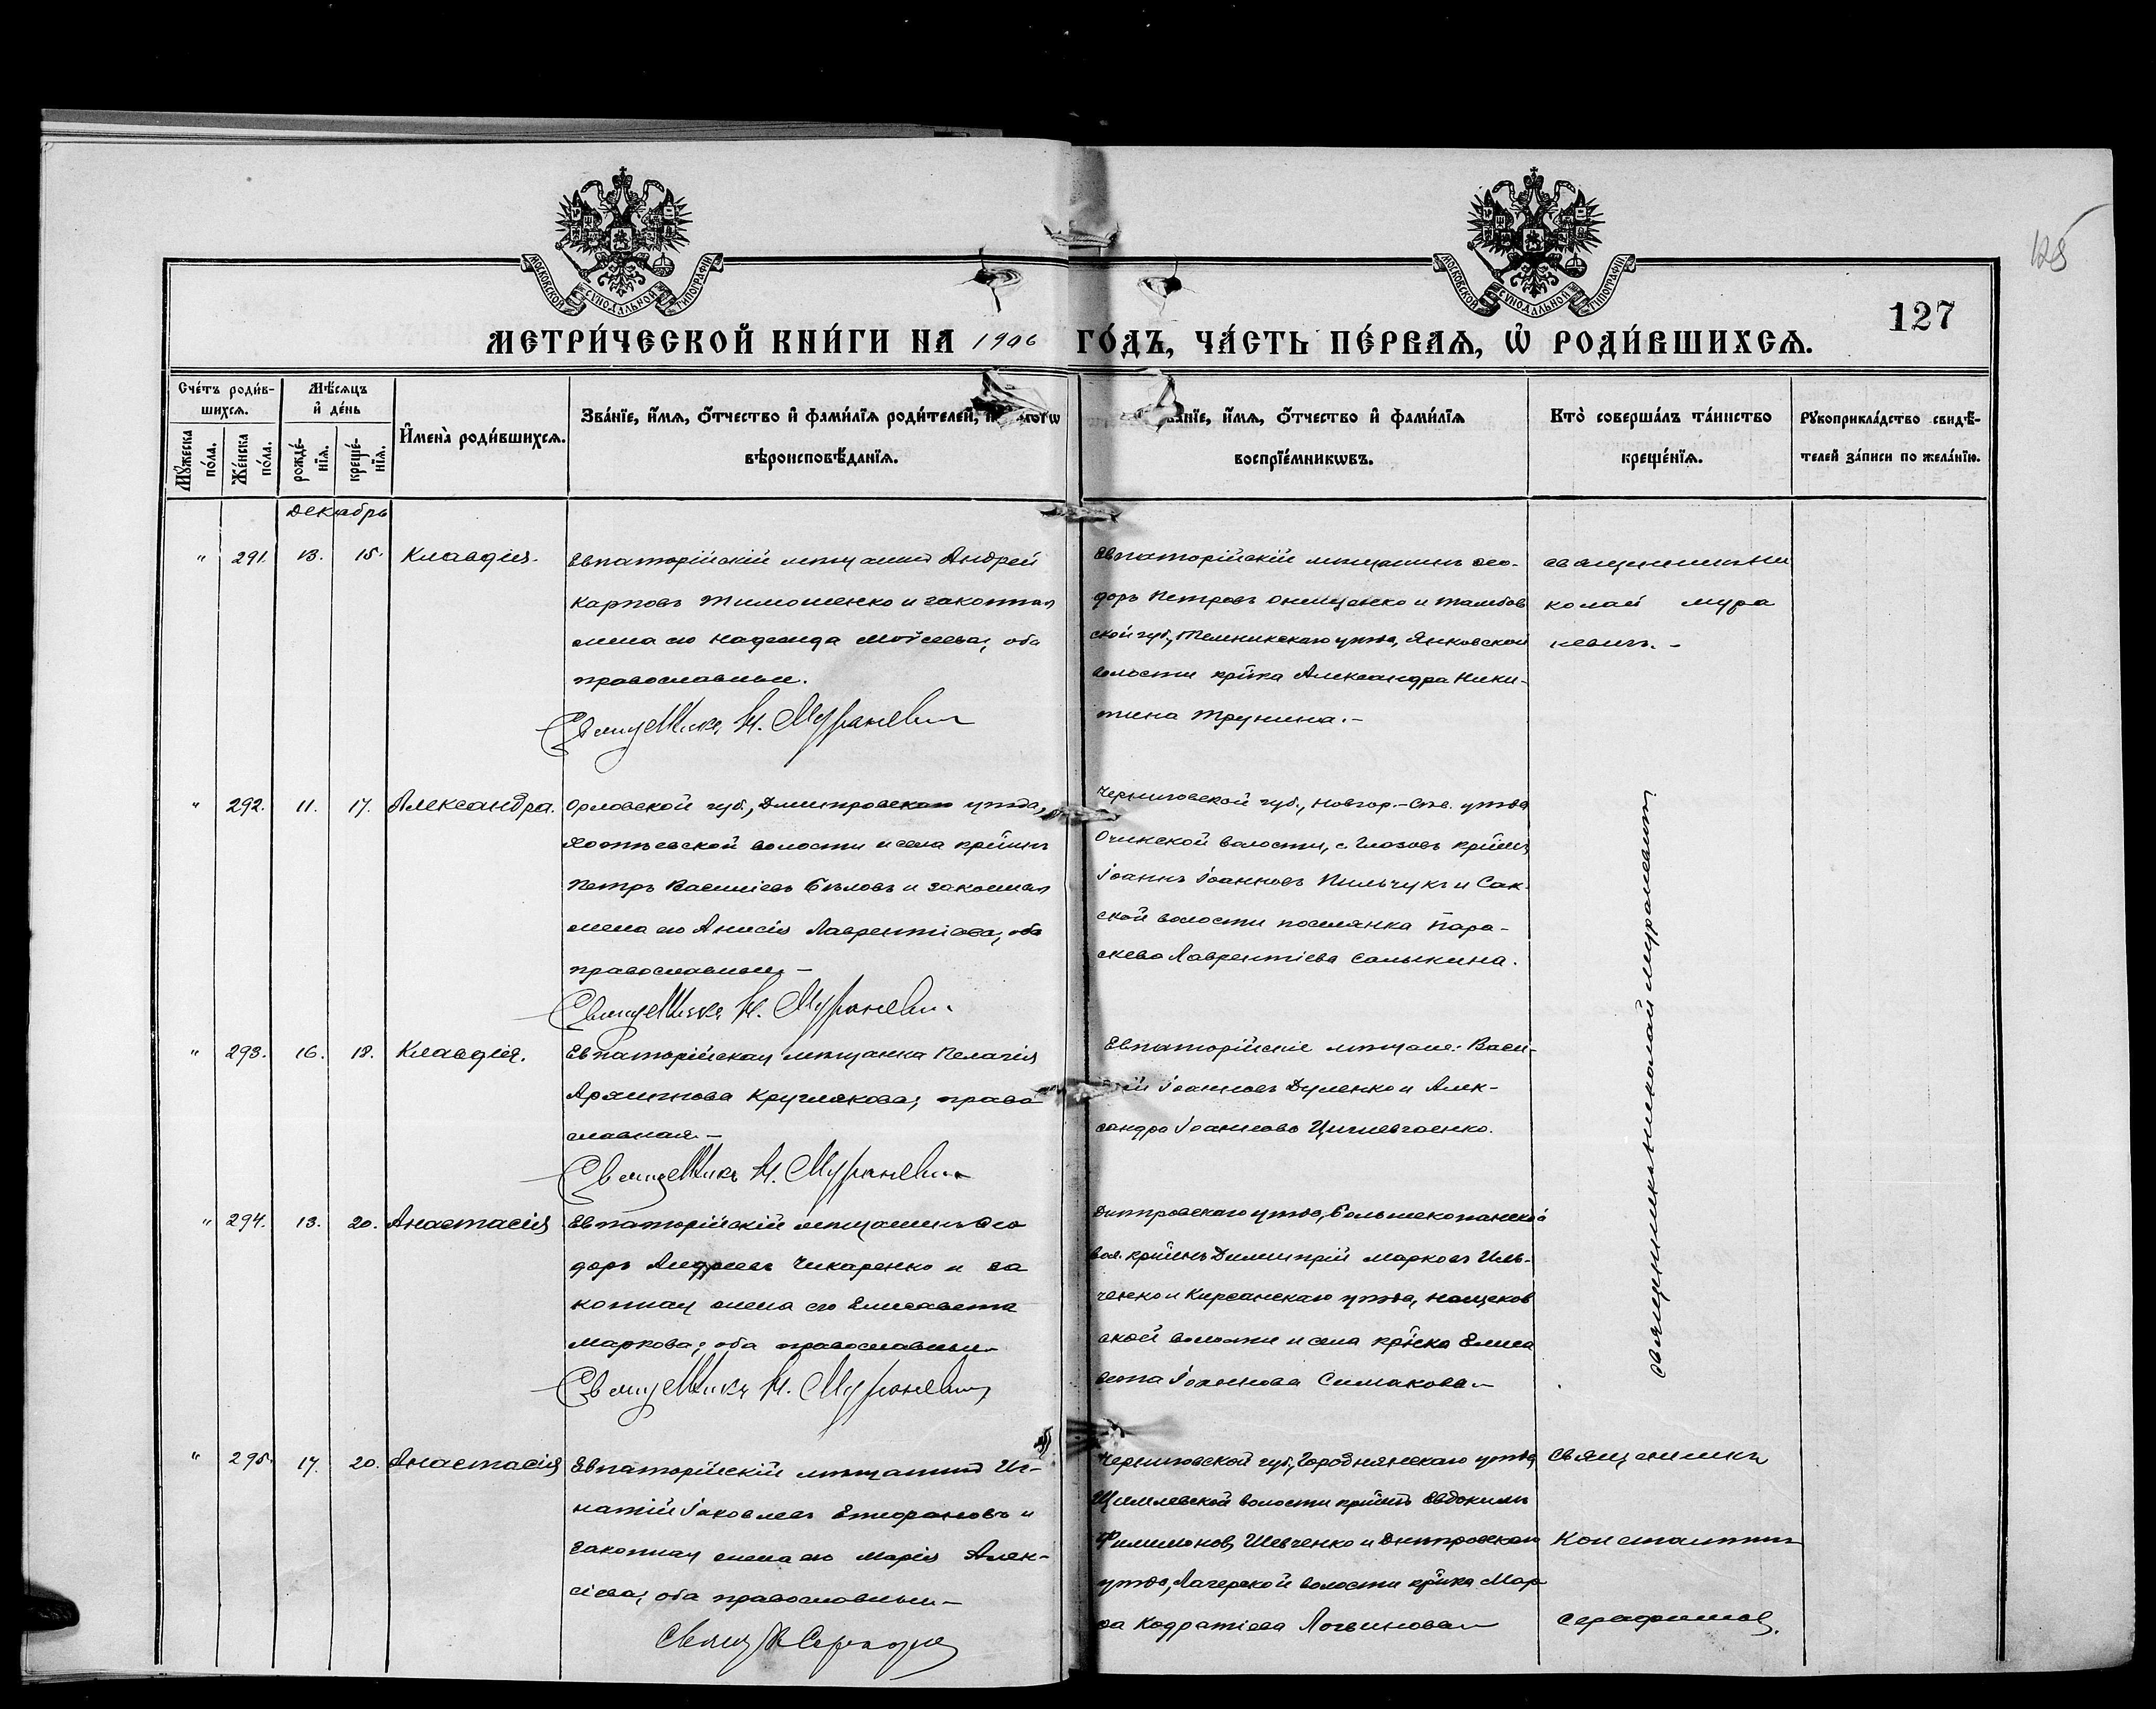 МОСКОВСКОЙ СѴНОДАЛЬНОЙ ТИПОГРАФІИ
МОСКОВСКОЙ СѴНОДАЛЬНОЙ ТИПОГРАФІИ
125
127
МЕТРИ́ЧЕСКОЙ КНИ́ГИ НА 1906 ГО́ДЪ, ЧА́СТЬ ПЕ́РВАѦ, Ѡ҆ РОДИ́ВШИХСѦ.
Сче́тъ роди́в-
шихсѧ.
Мꙋ́жеска по́ла.
Же́нска по́ла.
Мѣ́сѧцъ
и҆ де́нь
рожде́-
нїѧ.
креще́-
нїѧ.
И҆мена̀ роди́вшихсѧ.
Зва́нїе, и҆́мѧ, ѻ҆́тчество и҆ фами́лїѧ роди́телей, и҆
вѣроисповѣ́данїѧ.
и҆́мѧ, ѻ҆́тчество и҆ фами́лїѧ
воспрїе́мникѡвъ.
Кто̀ соверша́лъ та́инство
креще́нїѧ.
Рꙋкоприкла́дство свидѣ́-
телей за́писи по жела́нїю.
Декабрь
" 291. 13. 15. Клавдія.
Евпаторійскій мѣщанинъ Андрей
Карповъ Тимошенко и законная
жена его Надежда Моисеева, оба
православные.
Священникъ Н. Мураневич
Евпаторійскій мѣщанинъ Ѳео-
доръ Петровъ Онищенко и Тамбов
ской губ., Темниковскаго уѣзда, Янковской
волости кр-ка Александра Ники-
тина Трунина.-
Священникъ Ни
колай Мура
невичъ.-
" 292. 11. 17. Александра.
Орловской губ., Дмитровскаго уѣзда,
волости и села кр-нинъ
Петръ Василіевъ Бѣловъ и законная
жена его Анисія Лаврентіева, оба
православные.-
Священникъ Н. Мураневич.
Черниговской губ., Новгор.-Сѣв. уѣзда
Очкинской волости, с. Глазовъ кр-нинъ
Іоаннъ Іоанновъ Пильчукъ и Сак-
ской волости поселянка Пара-
скева Лаврентіева Салыкина.
Священникъ Николай Мураневичъ
" 293. 16. 18. Клавдія.
Евпаторійская мѣщанка Пелагія
Архиппова Круглякова, право
славная.-
Священникъ Н. Мураневич
Евпаторійскіе мѣщане: Васи-
лій Іоанновъ Дуленко и Алек-
сандра Іоаннова
" 294. 13. 20. Анастасія
Евпаторійскій мѣщанинъ Ѳео
доръ Андреевъ Чикаренко и за
конная жена его Елисавета
Маркова, оба православные.-
Священникъ Н. Мураневич
Днѣпровскаго уѣзда, Большекопанской
вол. кр-нинъ Димитрій Марковъ Иль-
ченко и Кирсанскаго уѣзда,
ской волости и села кр-нка Елиса
вета Іоаннова Симакова.-
" 295. 17. 20. Анастасія
Евпаторійскій мѣщанинъ Иг-
натій Іаковлевъ и
законная жена его Марія Алек-
сіева, оба православные.-
Черниговской губ., Городнянскаго уѣзда,
волости кр-нинъ Евдокимъ
Филимоновъ Шевченко и Днѣпровскаго
уѣзда, Лагерской волости кр-нка Мар
ѳа Кодратіева Логвинова.-
Священникъ
Константинъ
Серафимовъ.